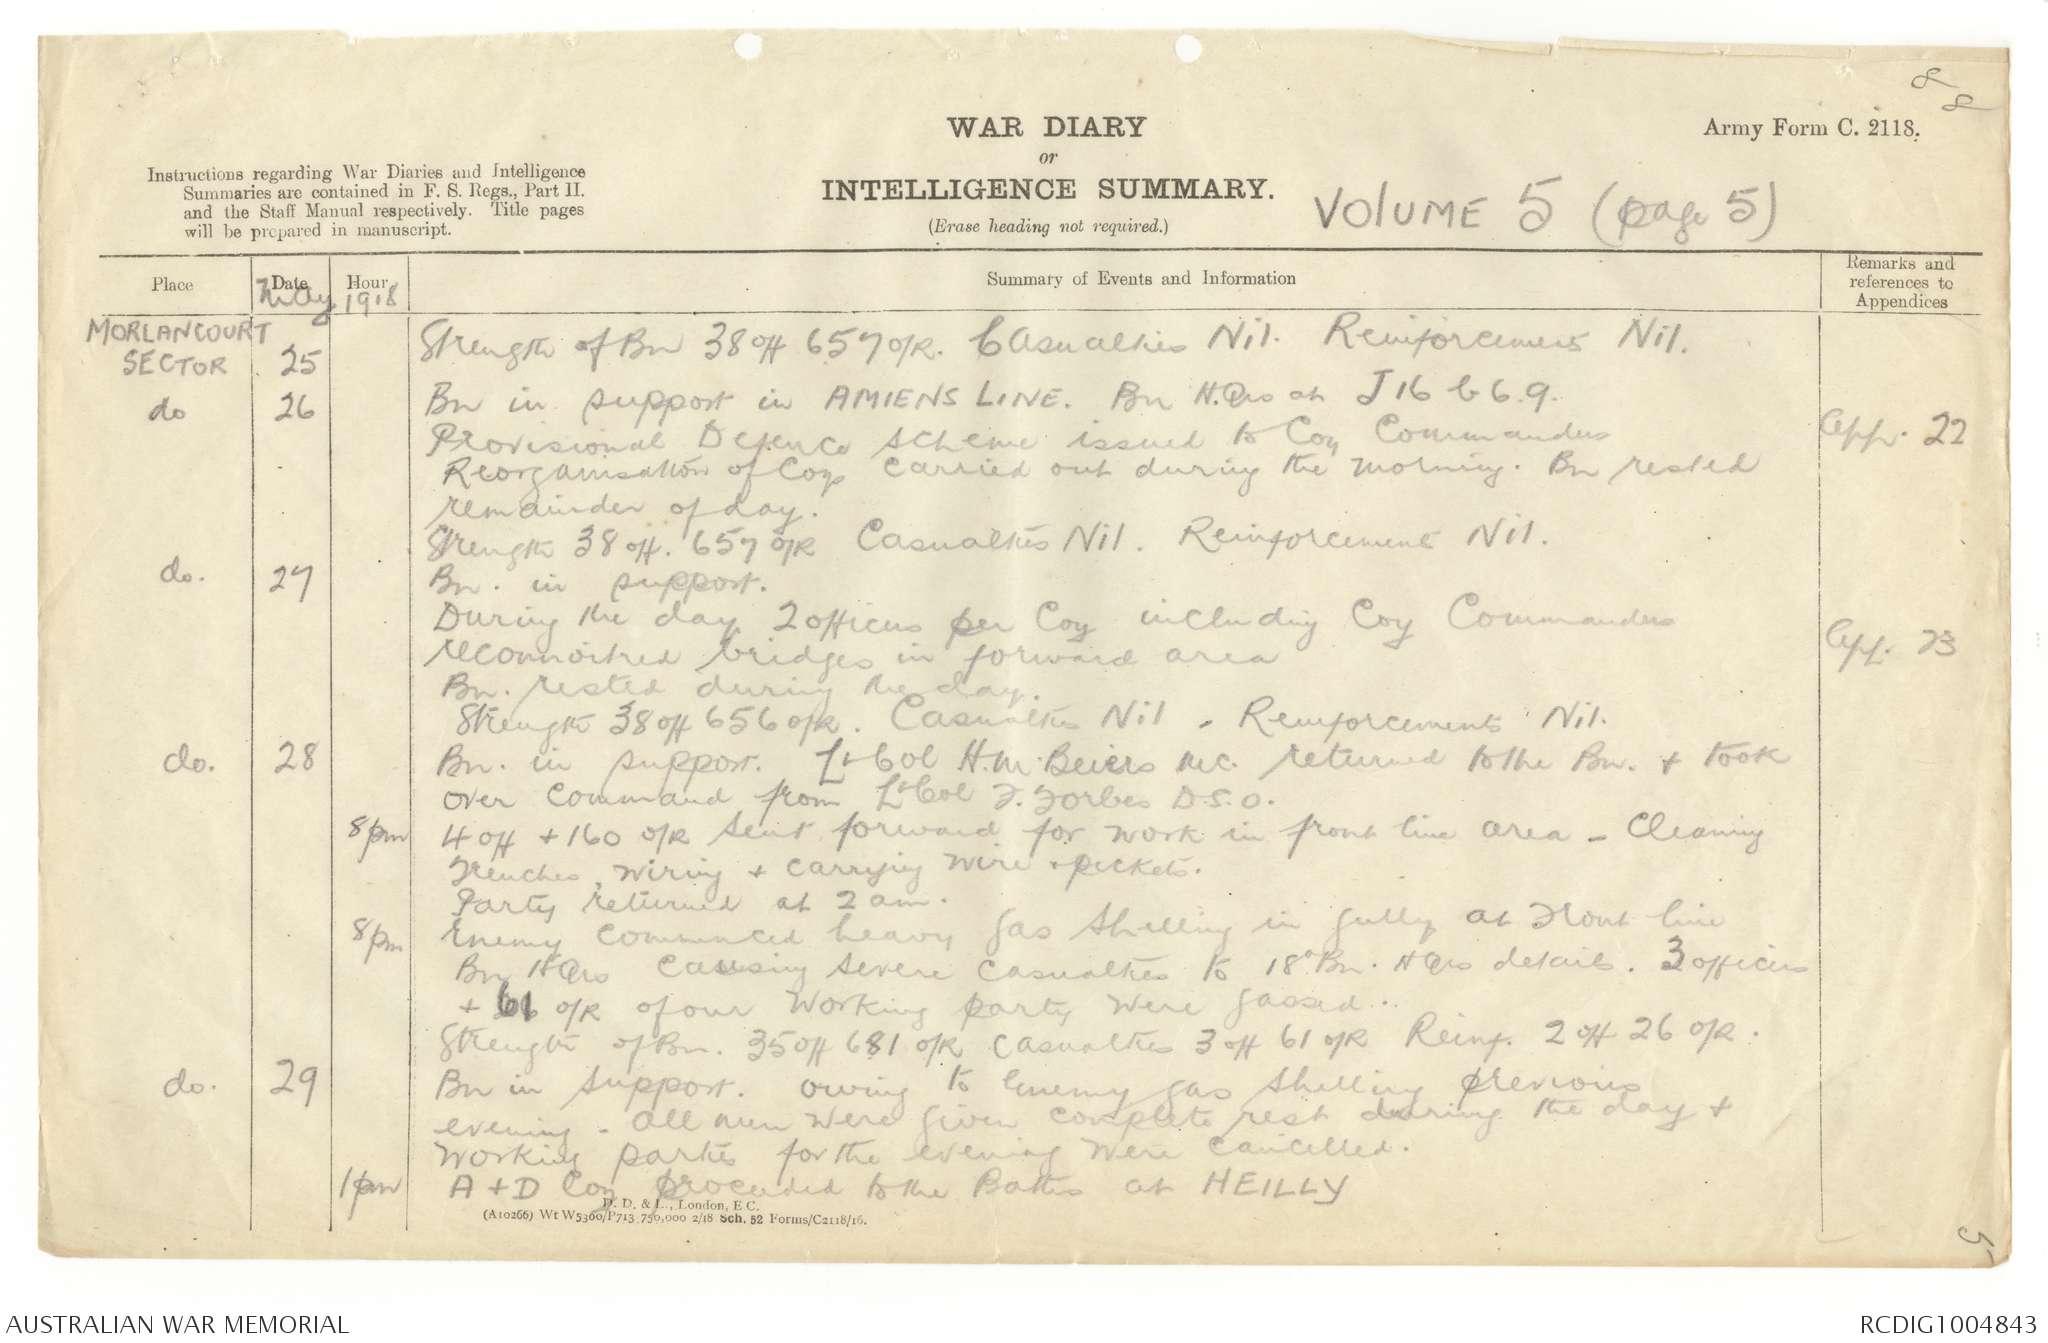 8
8
WAR DIARY
or
INTELLIGENCE SUMMARY.
(Erase heading not required.)
Army Form C. 2118.
Instructions regarding War Diaries and Intelligence
Summaries are contained in F. S. Regs., Part II.
and the Staff Manual respectively. Title pages
will be prepared in manuscript.
VOLUME 5 (page 5)
Place Date Hour Summary of Events and Information Remarks and references to Appendices
May 1918
MORLANCOURT
SECTOR 25 Strength of Bn 38 off 657 o/R. Casualties Nil. Reinforcements Nil.
do 26 Bn in support in AMIENS LINE. Bn H.Qrs at J16 b 6.9.
Provisional Defence Scheme issued to Coy Commanders App. 22
Reorganisation of Coys carried out during the morning. Bn rested
remainder of day.
Strength 38 off. 657 o/R Casualties Nil. Reinforcements Nil.
do. 27 Bn. in support.
During the day 2 officers per Coy including Coy Commanders
reconnoitred bridges in forward area App. 23
Bn. rested during the day.
Strength 38 off 656 o/R. Casualties Nil. Reinforcements Nil.
do. 28 Bn. in support. Lt Col H.M. Beiers MC. returned to the Bn. + took
over command from Lt Col F. Forbes D.S.O.
8pm 4 off + 160 o/R sent forward for work in front line area - Cleaning
Trenches, wiring + carrying wire + pickets.
Party returned at 2 am.
8pm Enemy commenced heavy gas shelling in gully at Front line
Bn HQrs causing severe casualties to 18° Bn. HQrs details. 3 officers
+ 61 o/R of our working party were gassed.
Strength of Bn. 35 off 681 o/R casualties 3 off 61 o/R Reinf. 2 off 26 o/R.
do. 29 Bn in support. Owing to Enemy gas shelling previous
evening - all men were given complete rest during the day +
working parties for the evening were cancelled.
1pm A + D Coy proceeded to the Baths at HEILLY
D. D. & L., London, E.C.
(A10266) Wt W5300/P713 750,000 2/18 Sch. 52 Forms/C2118/16.
5
AUSTRALIAN WAR MEMORIAL
RCDIG1004843